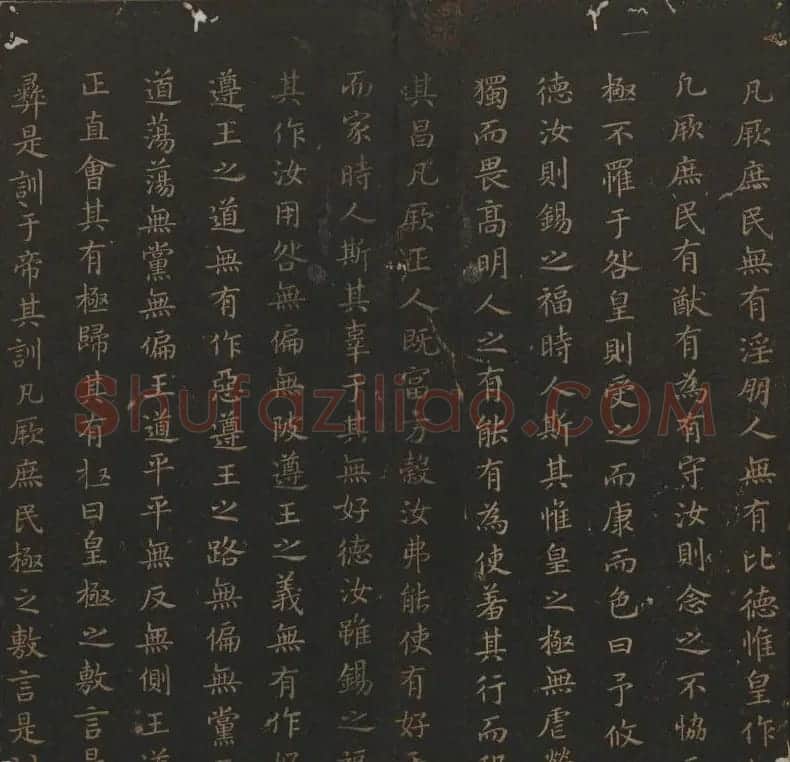 凡厥庶民無有淫朋人無有比德惟皇作
凢厥庶民有猷有為有守汝則念之不恊
極不罹于咎皇則受之而康而色曰予攸
德汝則錫之福時人斯其惟皇之極無虐
獨而畏髙明人之有能有為使羞其行而
其昌凡厥正人既富方穀汝弗能使有好
而家時人斯其辜于其無好德汝雖錫之福
其作汝用咎無偏無陂遵王之義無有作
遵王之道無有作惡遵王之路無偏無黨
道蕩蕩無黨無偏王道平平無反無側王道
正直會其有極歸其有極曰皇極之敷言是
彝是訓于帝其訓凡厥庶民極之敷言是
Shufaziliao.COM